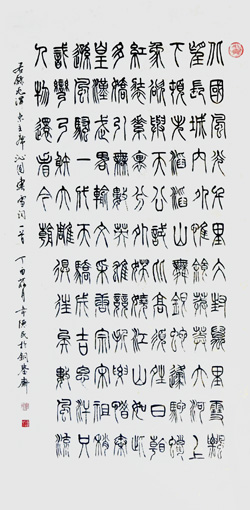 北國風光千里冰封萬里雪飄
望長城內外惟餘莽莽大河上
下頓失滔滔山舞銀蛇原馳蠟
象欲與天公試比高須晴日看
紅裝素裹分外妖嬈江山如此
多嬌引無數英雄競折腰惜秦
皇漢武略輸文采唐宗宋祖稍
遜風騷一代天驕成吉思汗只
識彎弓射大雕俱往矣數風流
人物還看今朝
右錄毛澤東主席沁園春雪詞一首 丁酉